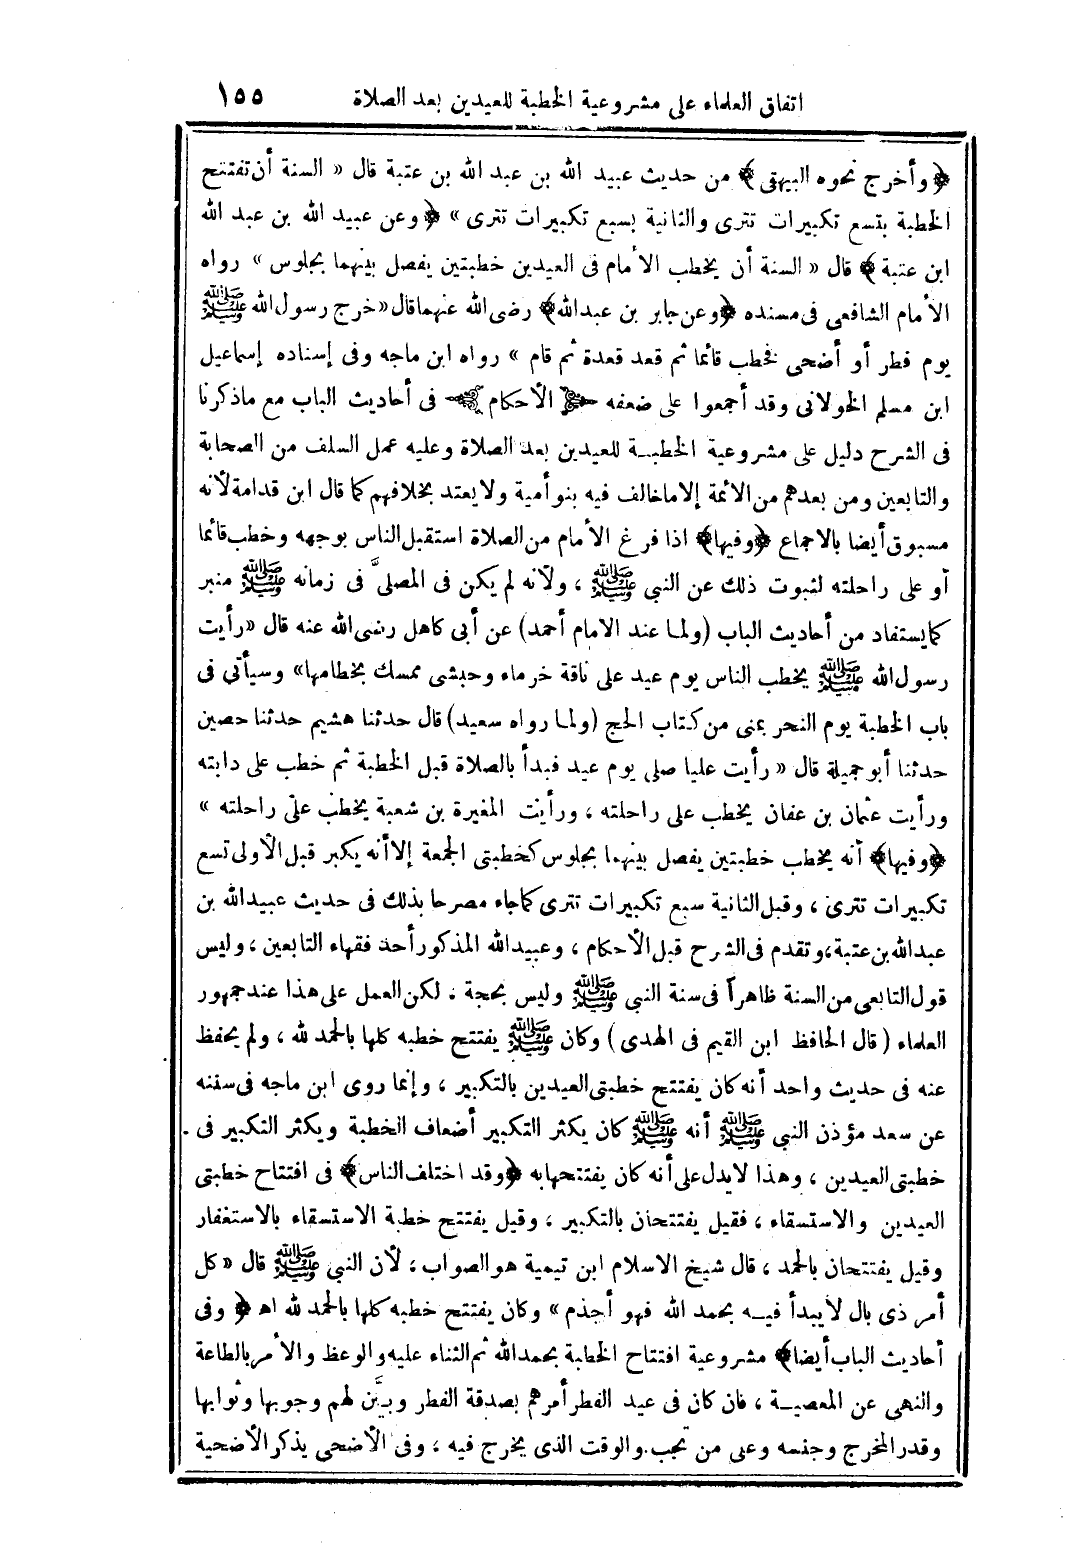 اتفاق العلماء على مشروعية الخطبة للعيدين بعد الصلاة ١٥٥
﴿وأخرج نحوه البيهقى﴾ من حديث عبيد الله بن عبد الله بن عتبة قال « السنة أن تفتتح
الخطبة بتسع تكبيرات تترى والثانية بسبع تكبيرات تترى » ﴿وعن عبيد الله بن عبد الله
ابن عتبة﴾ قال « السنة أن يخطب الأمام فى العيدين خطبتين يفصل بينهما بجلوس » رواه
الأمام الشافعى فى مسنده ﴿وعن جابر بن عبدالله﴾ رضى الله عنهما قال «خرج رسول الله ﷺ
يوم فطر أو أضحى فخطب قائما ثم قعد قعدة ثم قام » رواه ابن ماجه وفى إسناده إسماعيل
ابن مسلم الخولانى وقد أجمعوا على ضعفه الأحكام فى أحاديث الباب مع ماذكرنا
فى الشرح دليل على مشروعية الخطبة للعيدين بعد الصلاة وعليه عمل السلف من الصحابة
والتابعين ومن بعدهم من الائمة إلا ماخالف فيه بنو أمية ولا يعتد بخلافهم كما قال ابن قدامة لأنه
مسبوق أيضا بالاجماع ﴿وفيها﴾ اذا فرغ الأمام من الصلاة استقبل الناس بوجهه وخطب قائما
أو على راحلته لثبوت ذلك عن النبى ﷺ ، ولأنه لم يكن فى المصلىَّ فى زمانه ﷺ منبر
كما يستفاد من أحاديث الباب (ولما عند الامام أحمد) عن أبى كاهل رضى الله عنه قال «رأيت
رسول الله ﷺ يخطب الناس يوم عيد على ناقة خرماء وحبشى ممسك بخطامها» وسيأتى فى
باب الخطبة يوم النحر بمنى من كتاب الحج (ولما رواه سعيد) قال حدثنا هشيم حدثنا حصين
حدثنا أبو جميلة قال « رأيت عليا صلى يوم عيد فبدأ بالصلاة قبل الخطبة ثم خطب على دابته
ورأيت عثمان بن عفان يخطب على راحلته ، ورأيت المغيرة بن شعبة يخطب على راحلته »
﴿وفيها﴾ أنه يخطب خطبتين يفصل بينهما بجلوس كخطبتى الجمعة إلا أنه يكبر قبل الأولى تسع
تكبيرات تترى ، وقبل الثانية سبع تكبيرات تترى كما جاء مصرحا بذلك فى حديث عبيدالله بن
عبدالله بن عتبة، وتقدم فى الشرح قبل الأحكام ، وعبيدالله المذكور أحد فقهاء التابعين ، وليس
قول التابعى من السنة ظاهراً فى سنة النبى ﷺ وليس بحجة . لكن العمل على هذا عند جمهور
العلماء ( قال الحافظ ابن القيم فى الهدى ) وكان ﷺ يفتتح خطبه كلها بالحمد لله ، ولم يحفظ
عنه فى حديث واحد أنه كان يفتتح خطبتى العيدين بالتكبير ، وإنما روى ابن ماجه فى سننه
عن سعد مؤذن النبى ﷺ أنه ﷺ كان يكثر التكبير أضعاف الخطبة ويكثر التكبير فى
خطبتى العيدين ، وهذا لا يدل على أنه كان يفتتحها به ﴿وقد اختلف الناس﴾ فى افتتاح خطبتى
العيدين والاستسقاء ، فقيل يفتتحان بالتكبير ، وقيل يفتتح خطبة الاستسقاء بالاستغفار
وقيل يفتتحان بالحمد ، قال شيخ الاسلام ابن تيمية هو الصواب ، لأن النبى ﷺ قال «كل
أمر ذى بال لا يبدأ فيه بحمد الله فهو أجذم» وكان يفتتح خطبه كلها بالحمد لله اه ﴿ وفى
أحاديث الباب أيضا﴾ مشروعية افتتاح الخطبة بحمدالله ثم الثناء عليه والوعظ والأمر بالطاعة
والنهى عن المعصية ، فان كان فى عيد الفطر أمرهم بصدقة الفطر وبيَّن لهم وجوبها وثوابها
وقدر المخرج وجنسه وعلى من تجب والوقت الذى يخرج فيه ، وفى الأضحى يذكر الأضحية